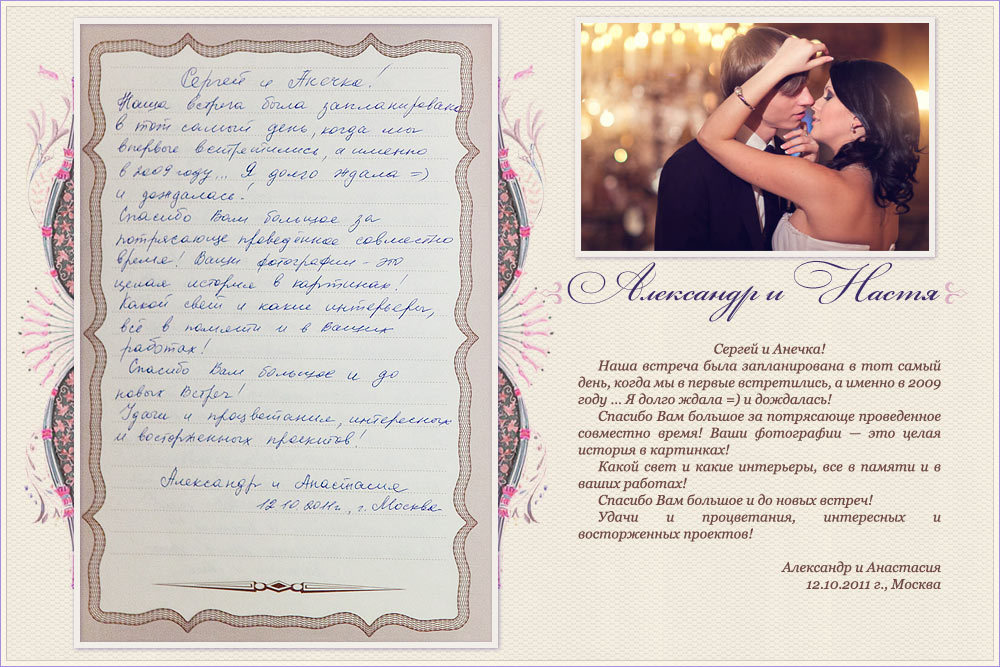 Сергей и Анечка!
Наша встреча была запланирована
в тот самый день, когда мы
впервые встретились, а именно
в 2009 году... Я долго ждала =)
и дождалась!
Спасибо Вам большое за
потрясающе проведённое совместно
время! Ваши фотографии - это
целая история в картинках!
Какой свет и какие интерьеры,
всё в памяти и в Ваших
работах!
Спасибо Вам большое и до
новых Встреч!
Удачи и процветания, интересных
и восторженных проектов!
Александр и Анастасия
12.10.2011г., г. Москва
Александр и Настя
Сергей и Анечка!
Наша встреча была запланирована в тот самый
день, когда мы в первые встретились, а именно в 2009
году ... Я долго ждала =) и дождалась!
Спасибо Вам большое за потрясающе проведенное
совместно время! Ваши фотографии — это целая
история в картинках!
Какой свет и какие интерьеры, все в памяти и в
ваших работах!
Спасибо Вам большое и до новых встреч!
Удачи и процветания, интересных и
восторженных проектов!
Александр и Анастасия
12.10.2011 г., Москва